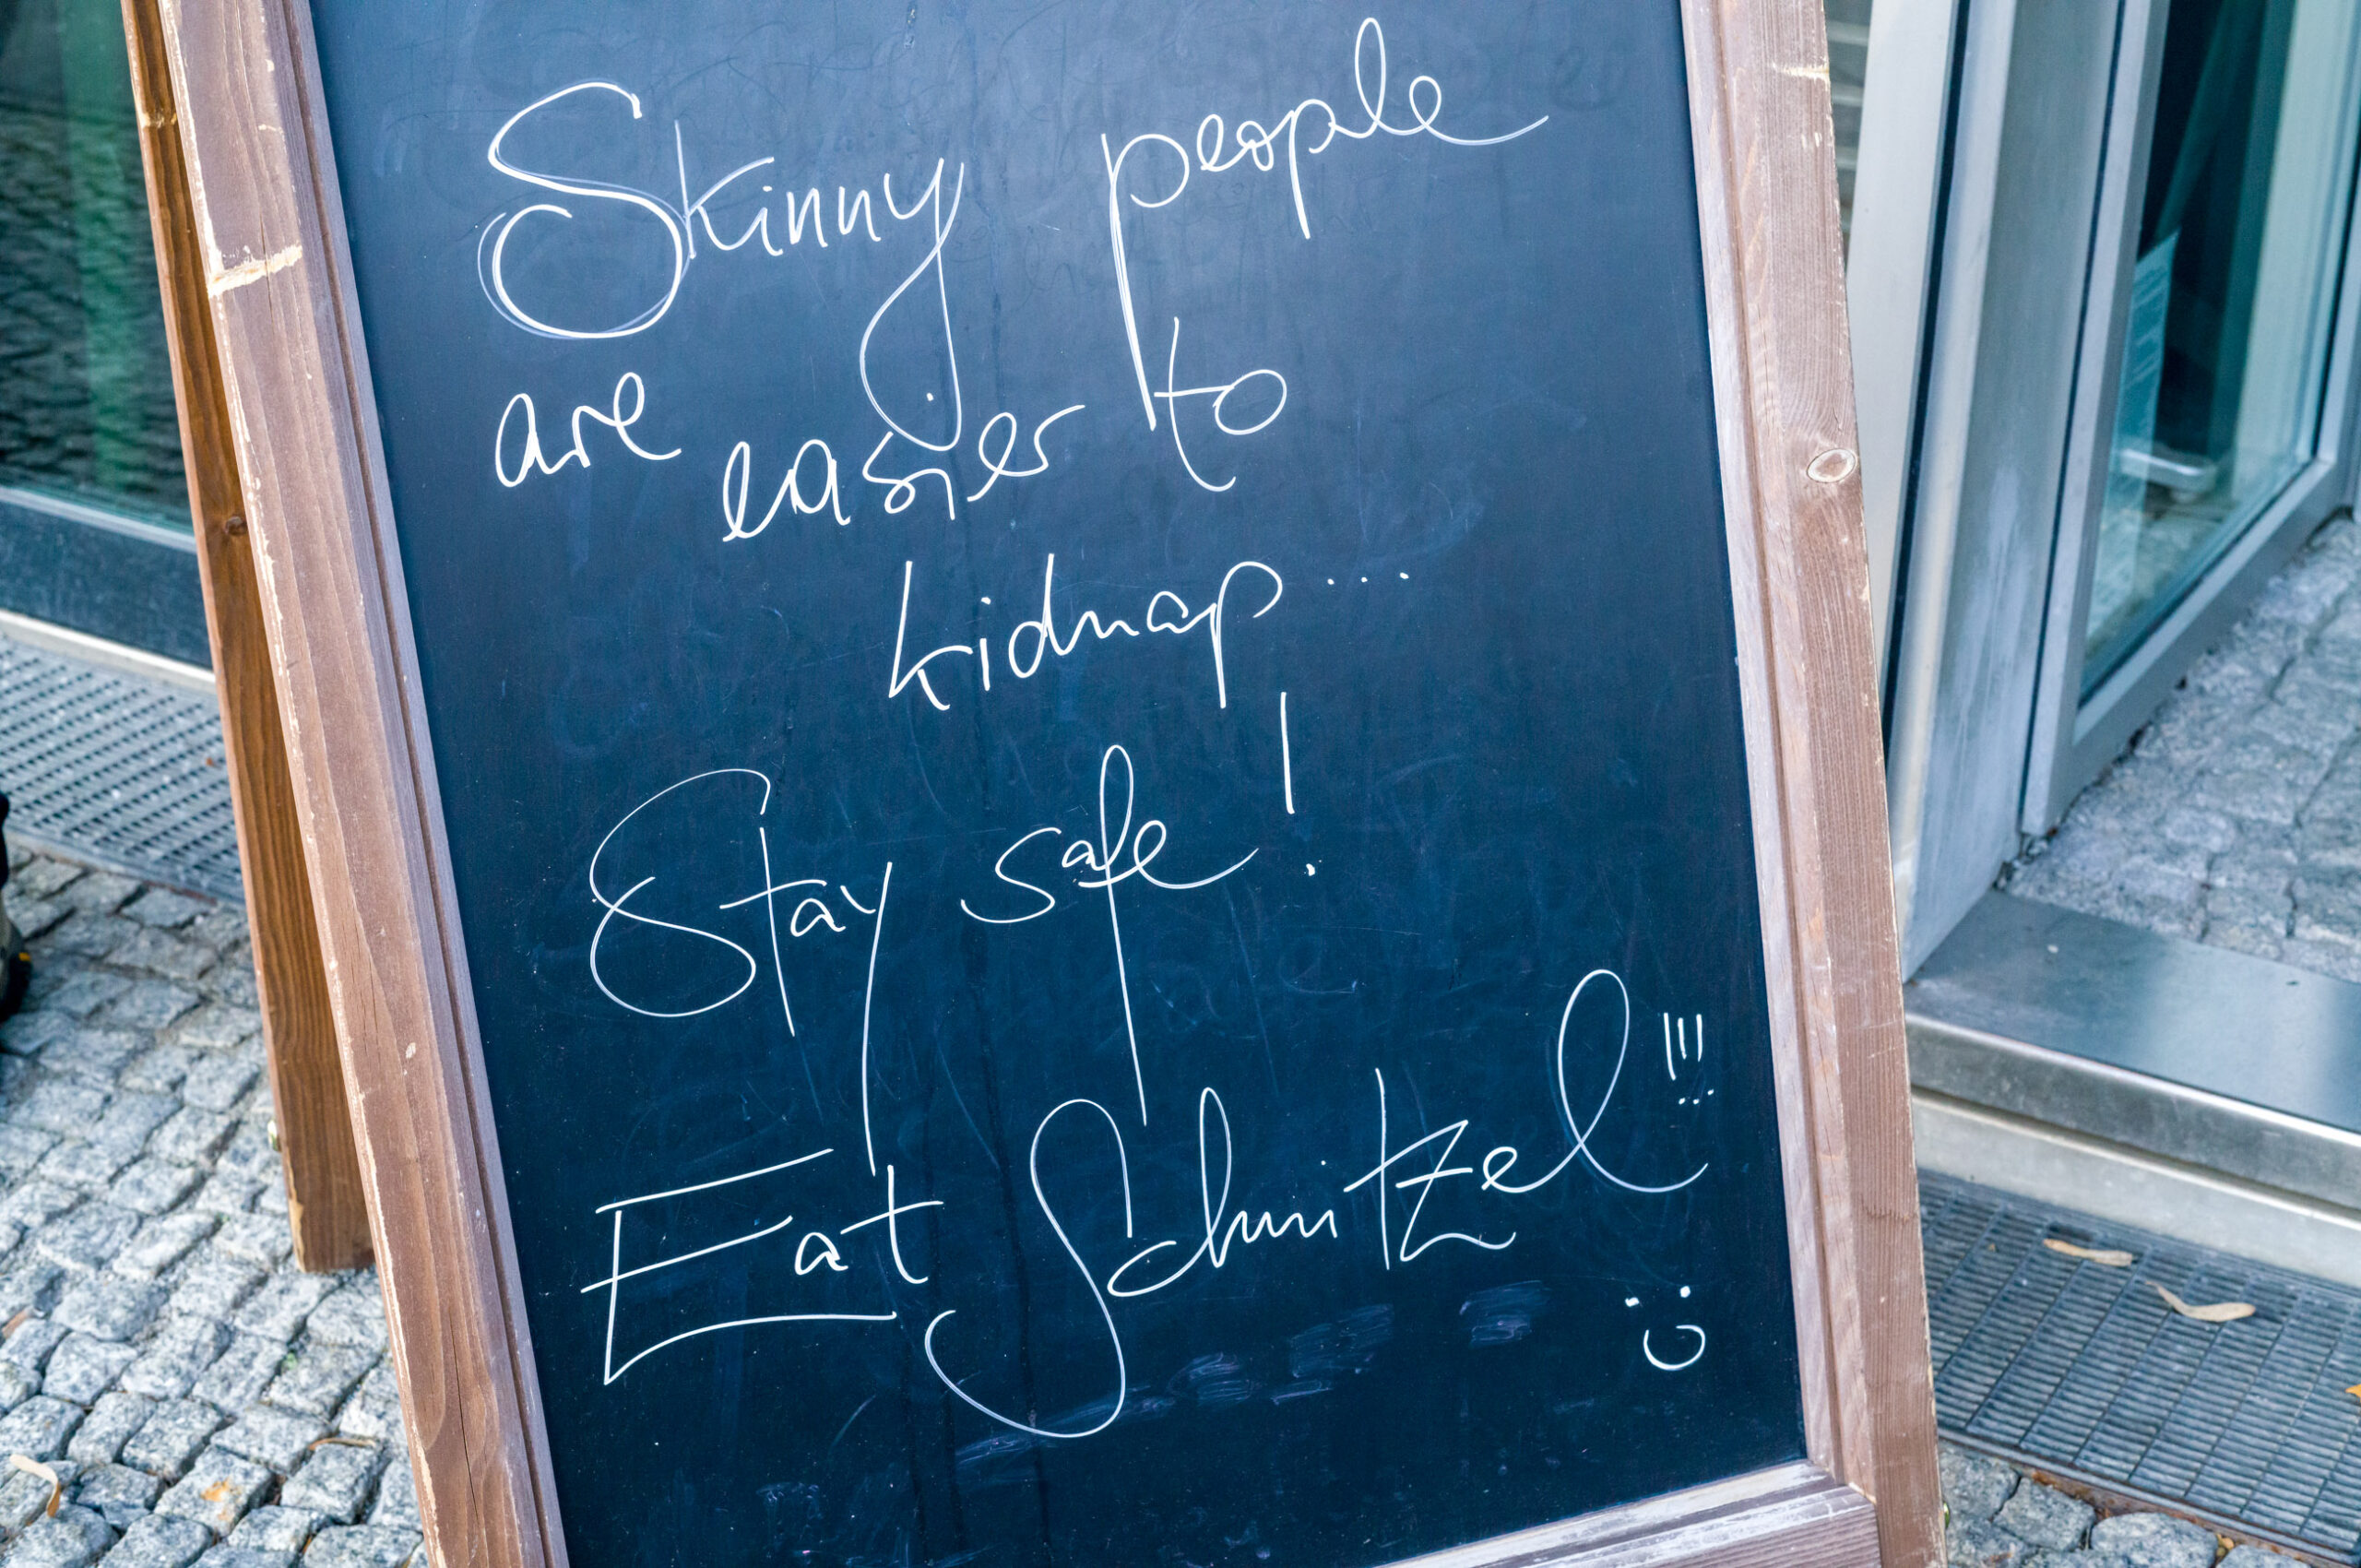 Skinny people
are easier to
kidnap...
Stay safe!
Eat Schnitzel!!!